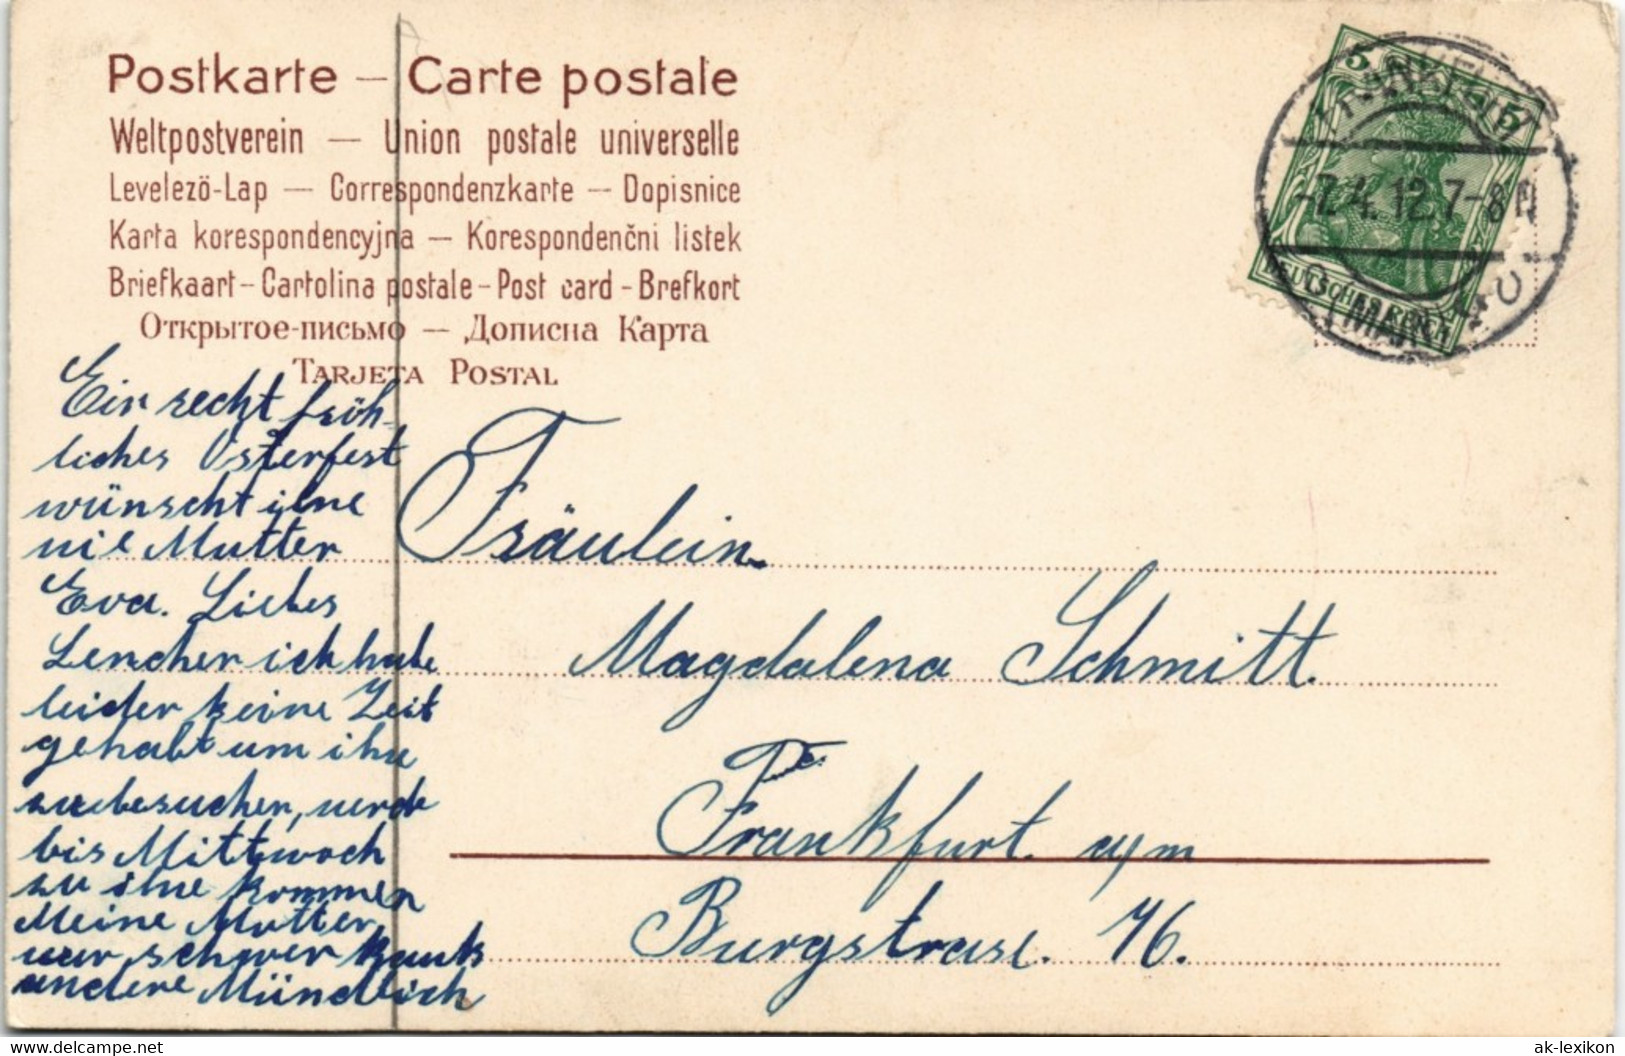 Postkarte – Carte postale
Weltpostverein — Union postale universelle
Levelezö-Lap — Correspondenzkarte — Dopisnice
Karta korespondencyjna — Korespondenčni listek
Briefkaart – Cartolina postale – Post card – Brefkort
Открытое-письмо — Дописна Карта
TARJETA POSTAL
5 5
DEUTSCHES REICH
-7.4.12.7-8N
Ein recht fröh-
liches Osterfest
wünscht ihne
nie Mutter
Eva. Liebes
Lenchen ich habe
leider keine Zeit
gehabt um ihn
zu besuchen, werde
bis Mittwoch
zu ihne kommen
Meine Mutter
war schwer krank
andere Mündlich
Fräulein
Magdalena Schmitt.
Fr.
Frankfurt. a/m
Burgstrase. 76.
delcampe.net
ak-lexikon